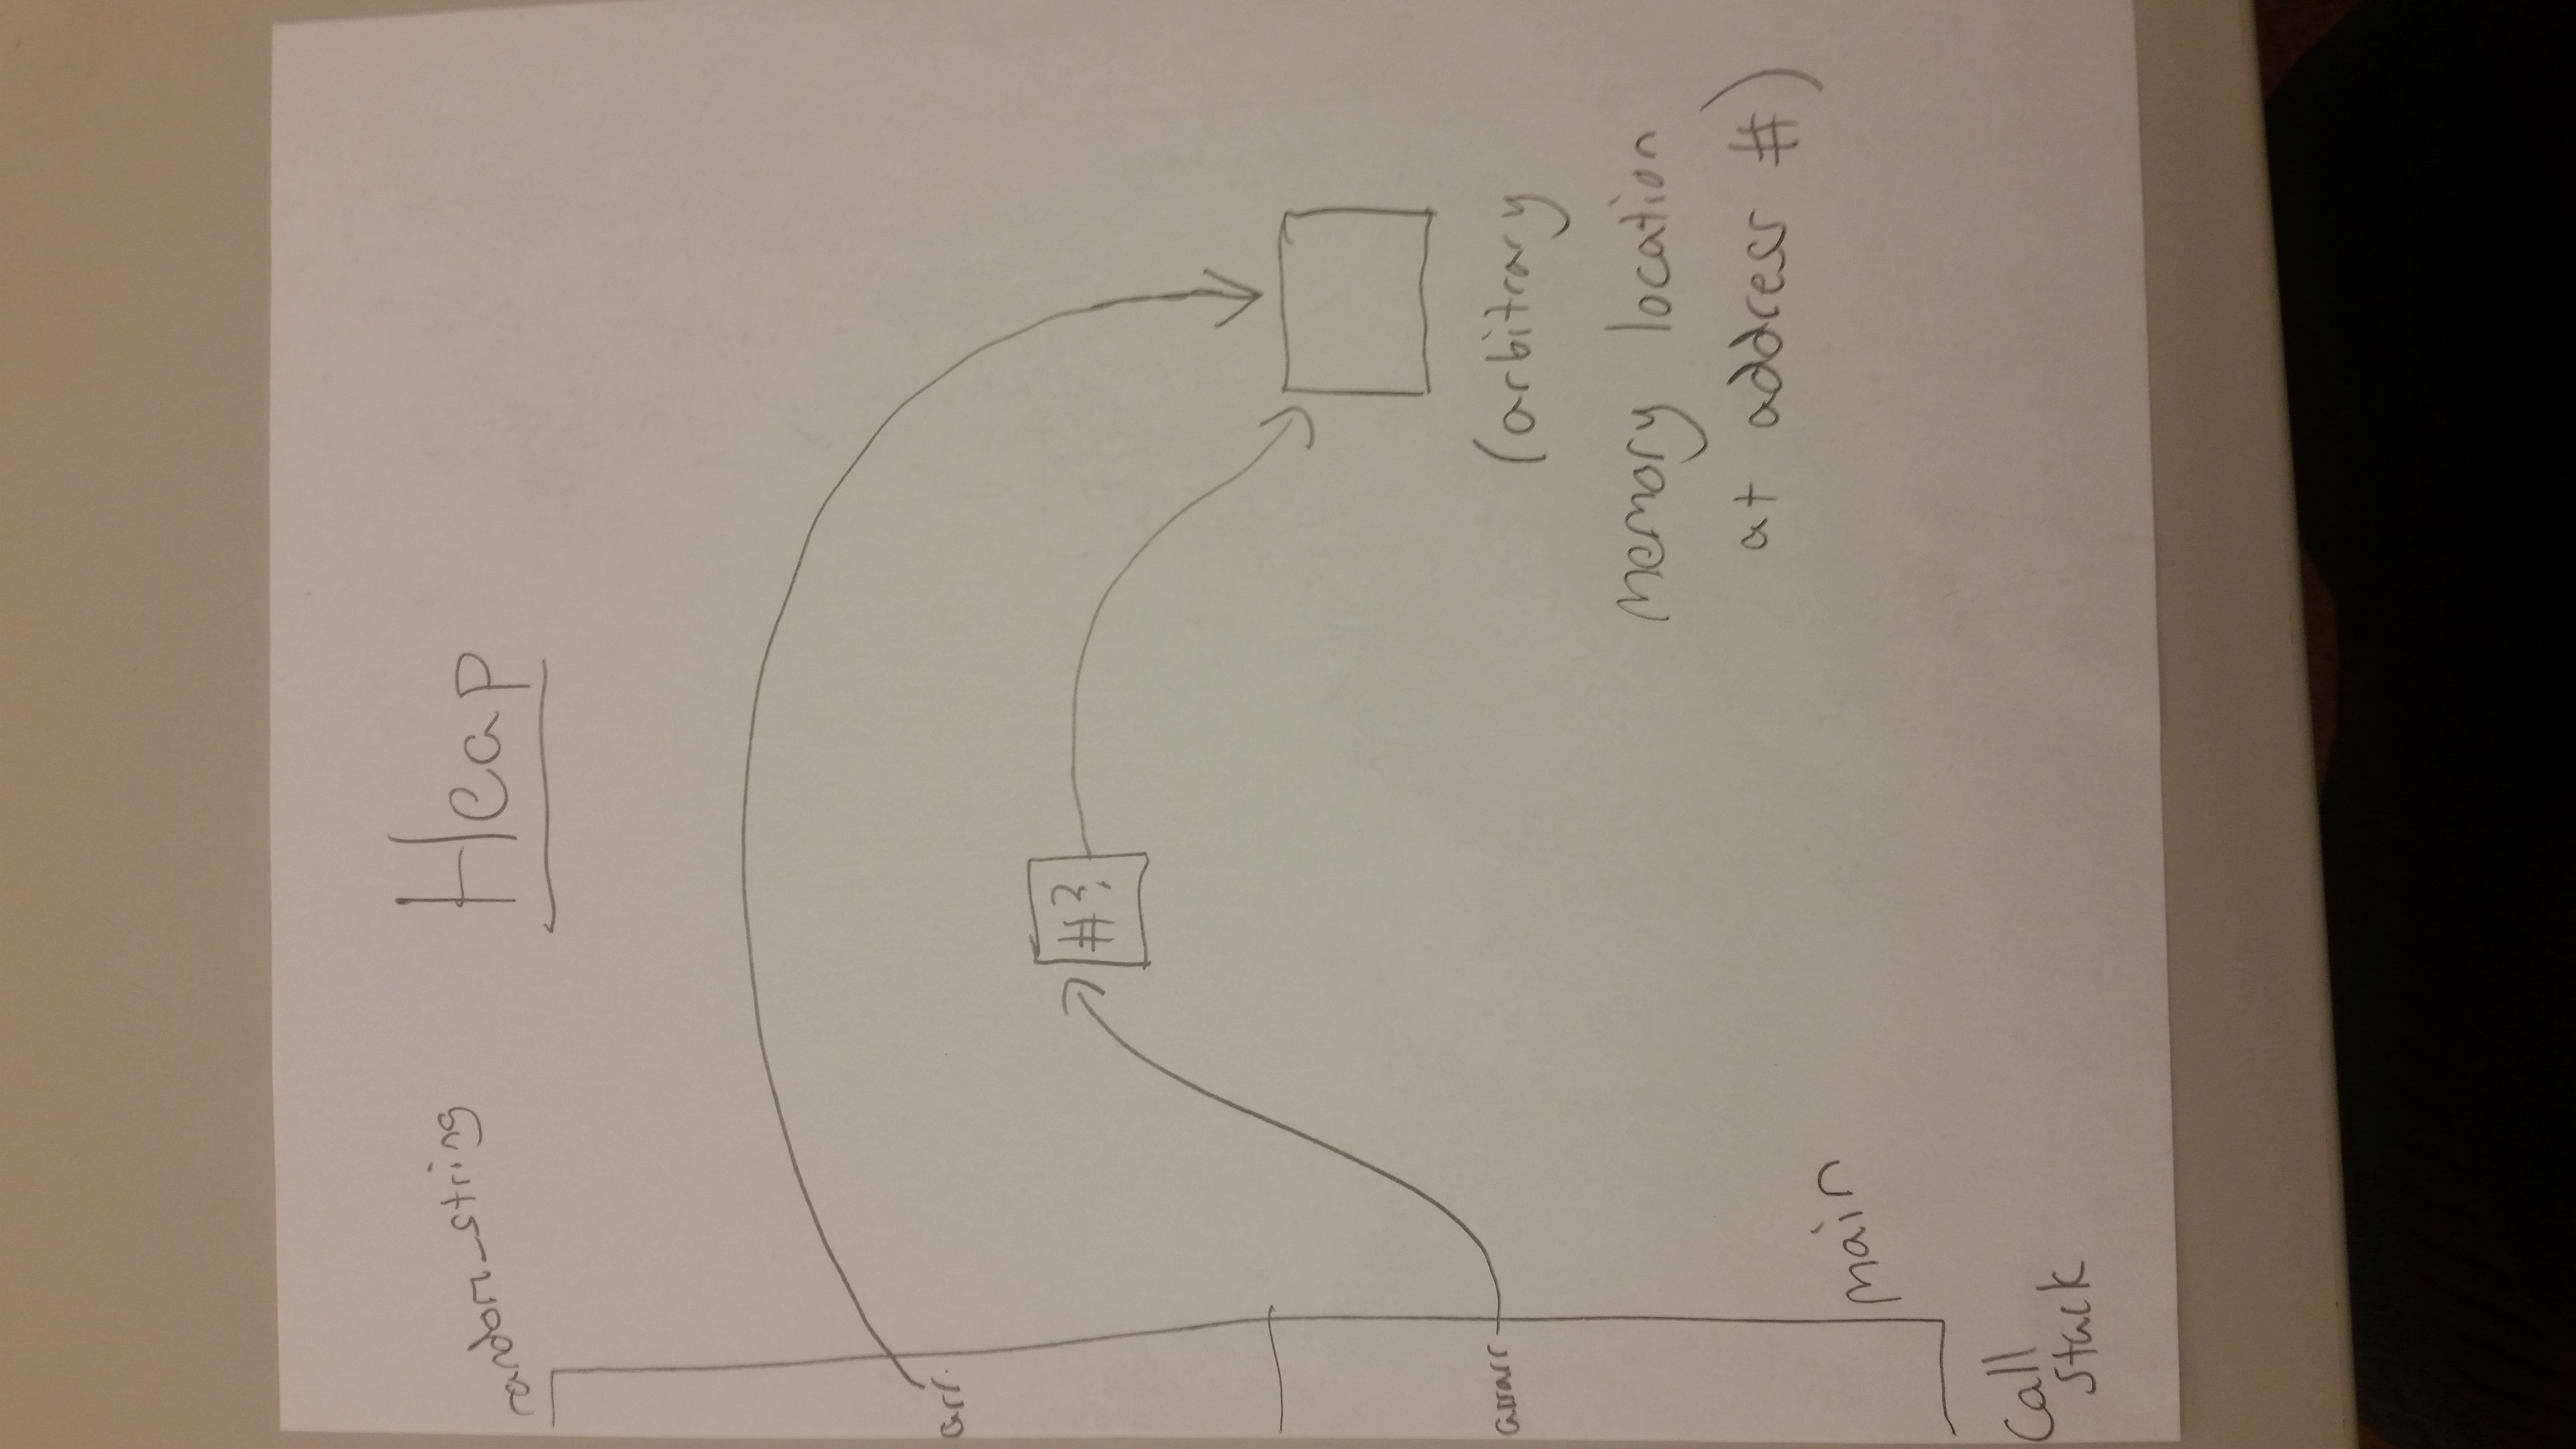 random_string
Heap
arr
#?
arrarr
(arbitrary
memory location
at address #)
main
Call
stack